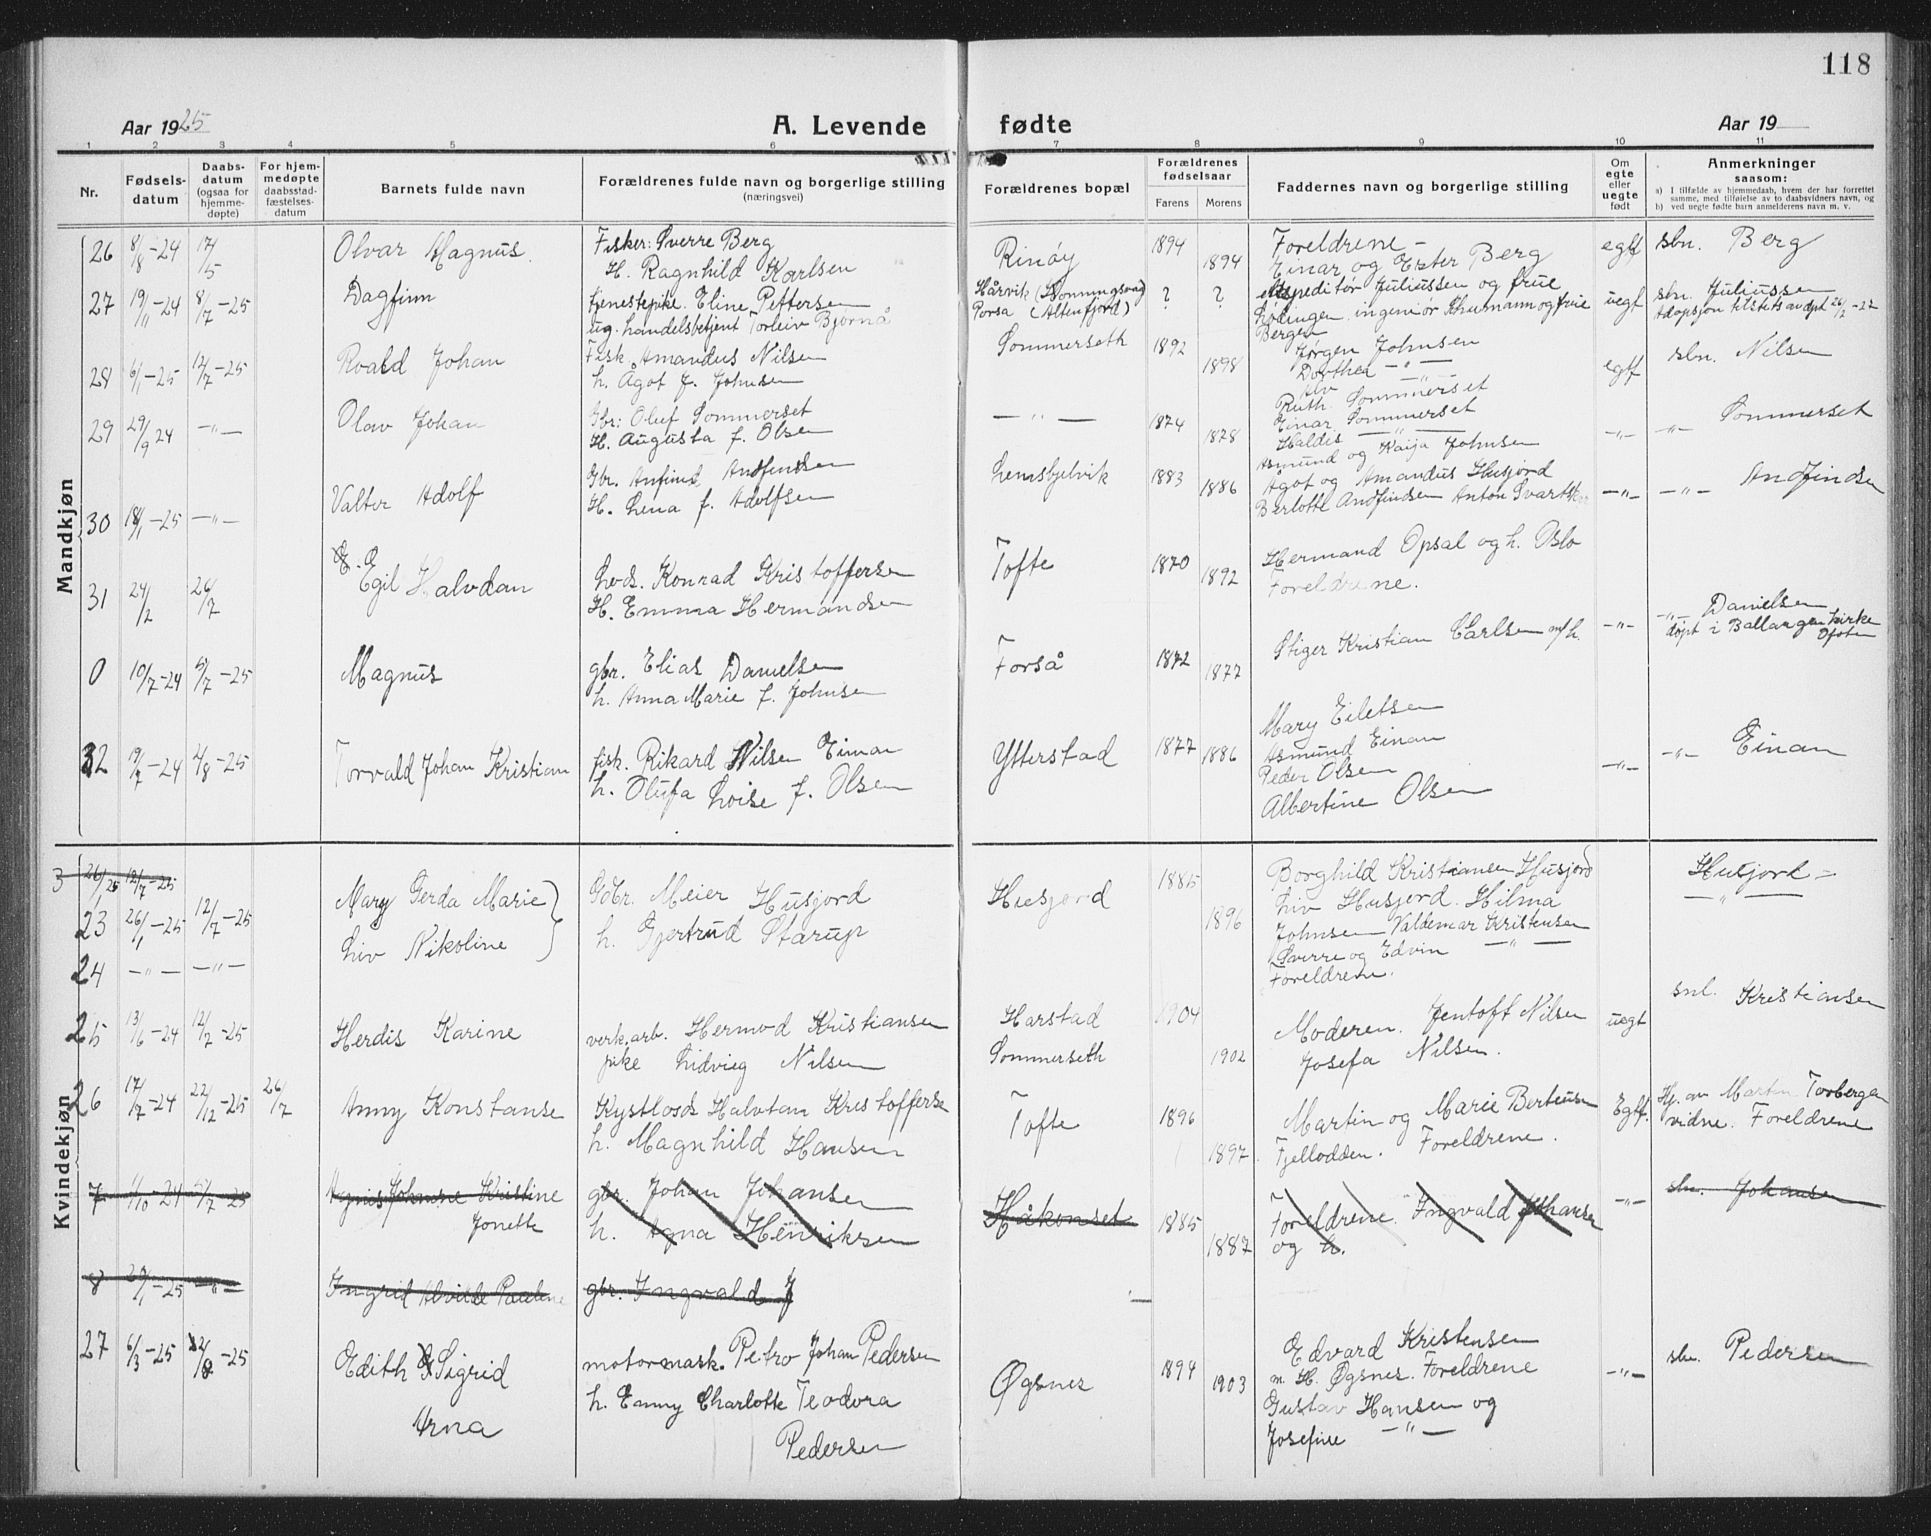 118
Aar 1925
A. Levende fødte
Aar 19
1 2 3 4 5 6 7 8 9 10 11
Nr.
Fødsels-
datum
Daabs-
datum
(ogsaa for
hjemme-
døpte)
For hjem-
medøpte
daabsstad-
fæstelses-
datum
Barnets fulde navn
Forældrenes fulde navn og borgerlige stilling
(næringsvei)
Forældrenes bopæl
Forældrenes
fødselsaar
Farens Morens
Faddernes navn og borgerlige stilling
Om
egte
eller
uegte
født
Anmerkninger
saasom:
a) I tilfælde av hjemmedaab, hvem der har forrettet
samme, med tilføielse av to daabsvidners navn, og
b) ved uegte fødte barn anmelderens navn m. v.
Mandkjøn
26 8/8-24 17/5 Olvar Magnus
Fisker: Sverre Berg
H. Ragnhild Karlsen
Rinøy 1894 1894
Foreldrene -
Einar og Ester Berg
egtf sbn. Berg
27 19/11-24 8/7-25 Dagfinn
Tjenestepike. Eline Pettersen
ug. handelsbetjent Torleiv Bjørnå
Hårvik (Honningsvåg)
Porsa (Altenfjord)
? ?
ekspeditør Juliussen og frue
Lødingen. ingeniør Thurmann og frue
Bergen
uegt sbn. Juliussen
Adopsjon tilstets av dpt 26/2-27
28 6/1-25 12/7-25 Roald Johan
Fisk. Amandus Nilsen
h. Ågot f. Johnsen
Sommerseth 1892 1898
Jørgen Johnsen
Dorthea -"-
Ruth. Sommerset
egtf sbn. Nilsen
29 29/9 24 -"- Olav Johan
Gbr: Oluf Sommerset
H. Augusta f. Olsen
-"- 1874 1878
Einar Sommerset
Haldis -"-
Asmund og Kaija Johnsen
-"- -"- Sommerset
30 18/1-25 -"- Valter Adolf
Gbr. Anfind Andfindsen
H. Lena f. Adolfsen
1883 1886
Ågot og Amandus Husjord
Andfindsen Anton
-"- -"- Andfindsen
31 24/2 26/7 Egil Halvdan
Konrad Kristoffersen
H. Emma Hermandsen
Tofte 1870 1892
Hermand Opsal og h. Oslo
Foreldrene.
-"-
0 10/7-24 5/7-25 Magnus
gbr. Elias Danielsen
h. Anna Marie f. Johnsen
Forså 1872 1877
Stiger Kristian Carlsen m/h.
-"- Danielsen
døpt i Ballangen kirke
Ofoten
32 19/7-24 2/8-25 Torvald Johan Kristian
fisk. Rikard Nilsen Einan
h. Olufa Loise f. Olsen
Ytterstad 1877 1886
Mary Eiletsen
Asmund Einan
Peder Olsen
Albertine Olsen
-"- -"- Einan
Kvindekjøn
3 26/25 12/7-25
23 26/1-25 12/7-25 Mary Gerda Marie
24 -"- -"- Liv Nikoline
Gbr. Meier Husjord
h. Gjertrud Starup
Husjord 1885 1896
Borghild Kristiansen Husjord
Liv Husjord. Hilma
Johnsen Valdemar Kristensen
Sverre og Edvin -"-
Foreldrene.
Husjord -
-"-
25 13/6-24 12/7-25 Herdis Karine
verk.arb. Hermod Kristiansen
pike Lidvieg Nilsen
Harstad
Sommerseth
1904 1902
Moderen. Jentoft Nilsen
Josefa Nilsen.
uegt snl. Kristiansen
26 17/7-24 22/12-25 26/7 Anny Konstanse
Kystlods Halvtan Kristoffersen
h. Magnhild Hansen
Tofte 1896 1897
Martin og Marie Berteusen
Fjellodden. Foreldrene.
Egtf. Hj. av Martin Torbergen
vidne. Foreldrene
7 1/10-24 5/7-25 Agnis Johanne Kristine
Jonette
gbr. Johan Johansen
h. Agna Henriksen
Håkonset 1885 1887
Foreldrene. Ingvald Johansen
og h.
-"- sbn. Johansen
8 29/1-25 -"- Ingrid Alvilde Paulene
gbr. Ingvald J
27 6/3-25 2/8-25 Edith Sigrid
Arna
motormask. Petro Johan Pedersen
h. Emmy Charlotte Teodora
Pedersen
Øgsnes 1894 1903
Edvard Kristensen
m. H. Øgsnes. Foreldrene
Gustav Hansen og
Josefine -"-
-"- sbn. Pedersen